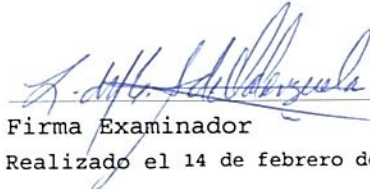 Firma Examinador
Realizado el 14 de febrero de